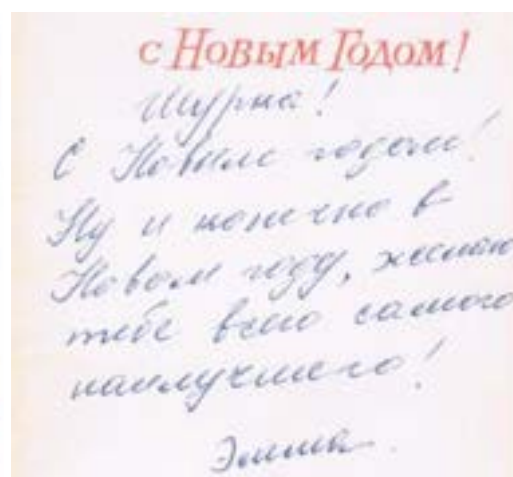 с Новым Годом!
Шурка!
С Новым годом!
Ну и конечно в
Новом году, желаю
тебе всего самого
наилучшего!
Эмма.